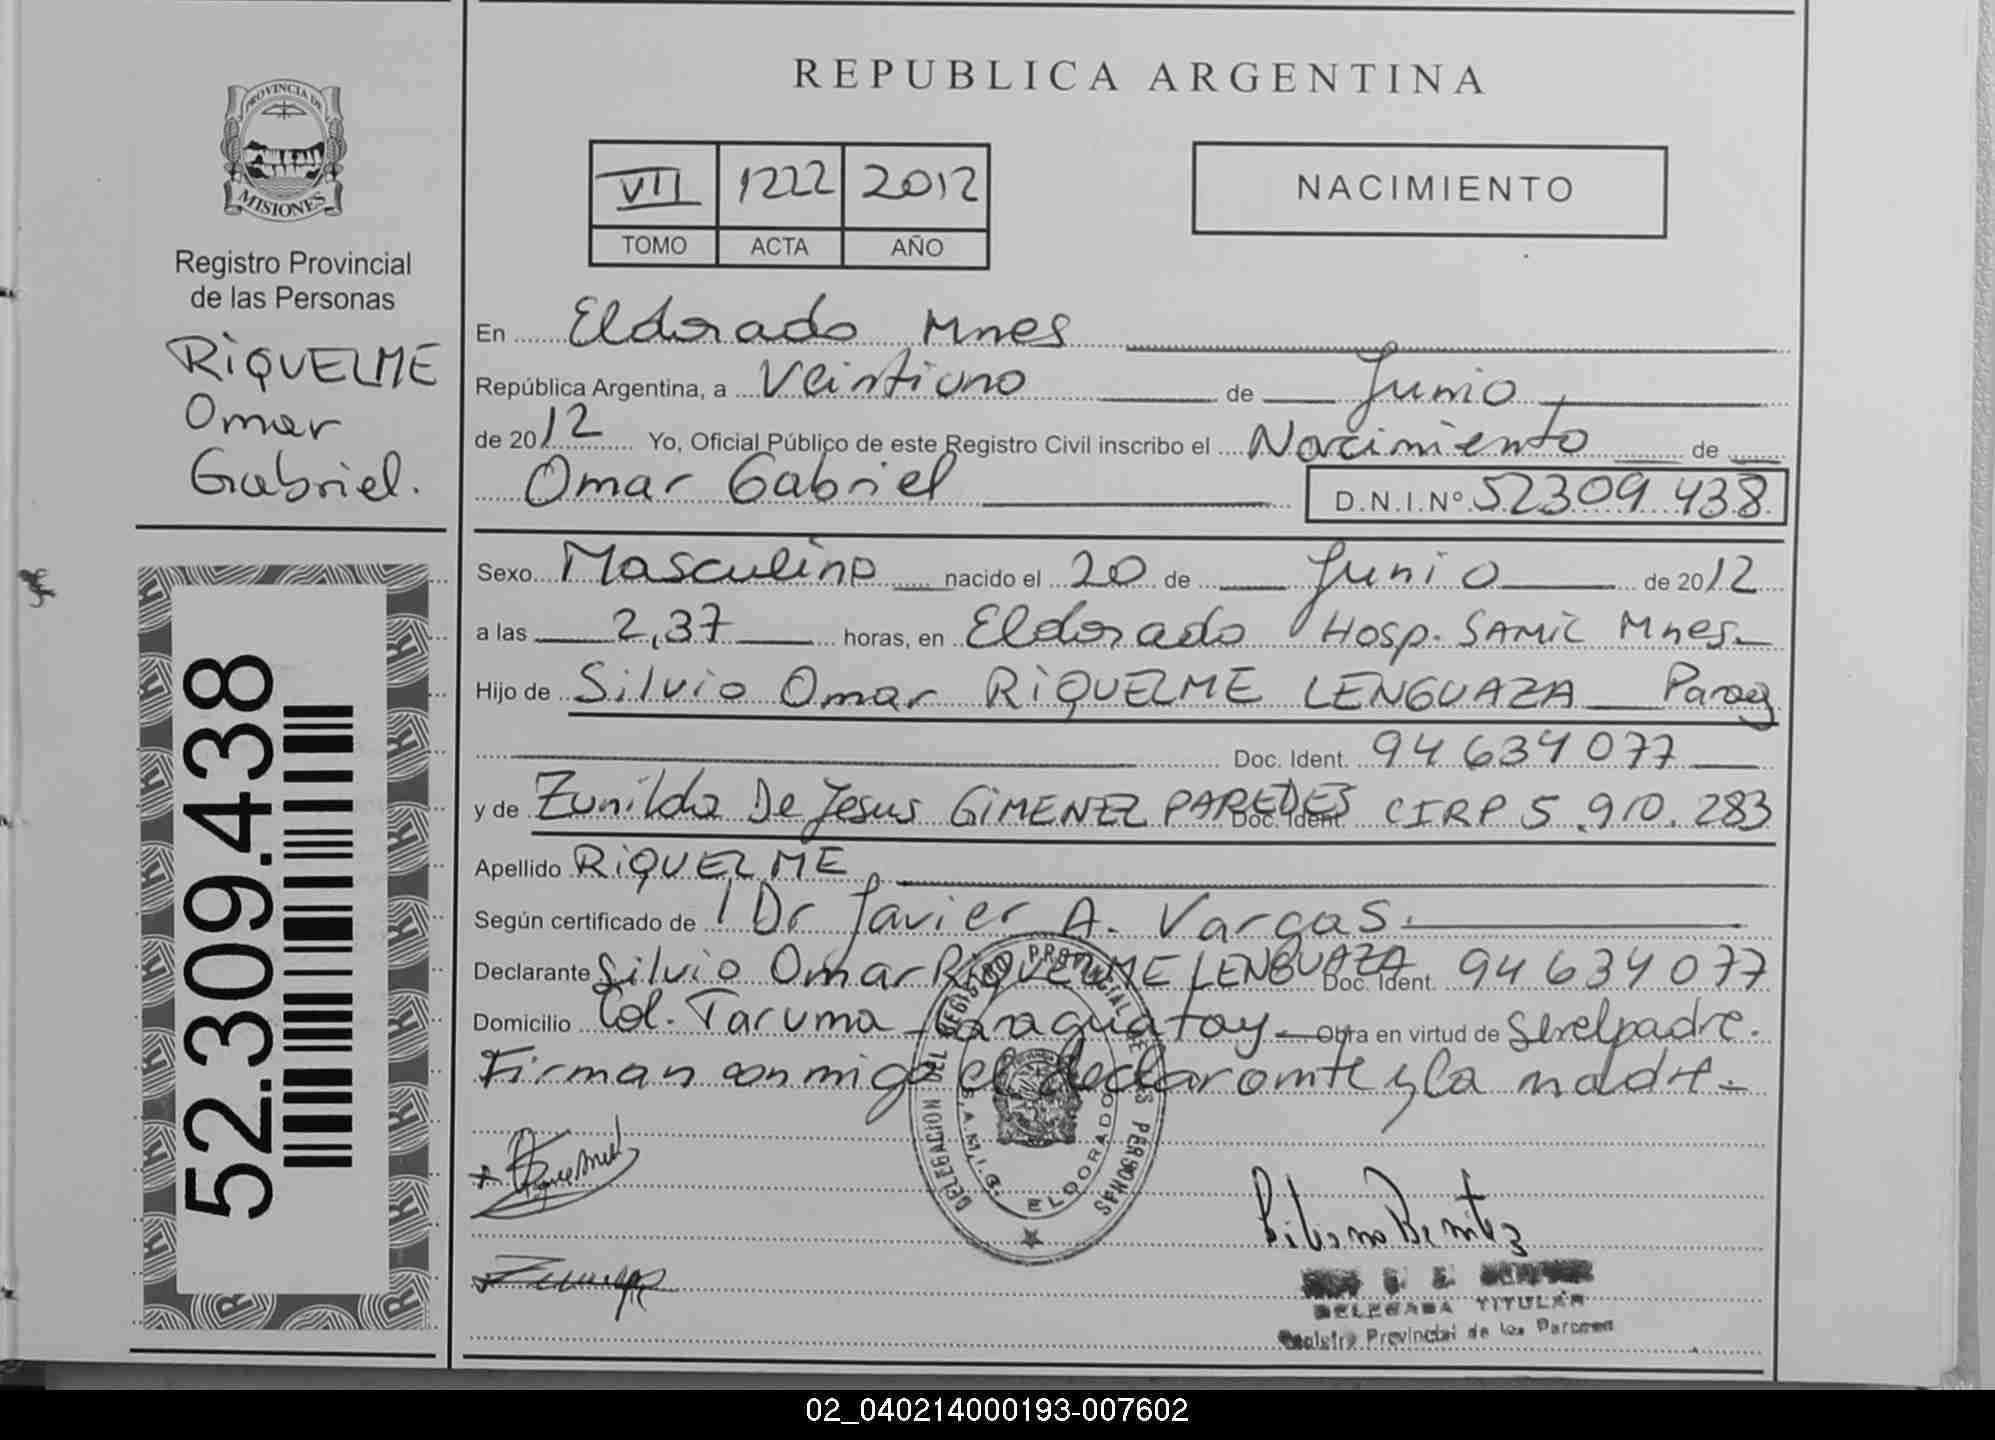 PROVINCIA DE
MISIONES
Registro Provincial
de las Personas
RIQUELME
Omar
Gabriel.
52.309.438
REPUBLICA ARGENTINA
VII 1222 2012
TOMO ACTA AÑO
NACIMIENTO
En Eldorado Mnes
República Argentina, a Veintiuno de Junio
de 2012 Yo, Oficial Público de este Registro Civil inscribo el Nacimiento de
Omar Gabriel D.N.I.Nº 52309438
Sexo Masculino nacido el 20 de Junio de 2012
a las 2,37 horas, en Eldorado Hosp. SAMIC Mnes
Hijo de Silvio Omar RIQUELME LENGUAZA Parag
Doc. Ident. 94 634 077
y de Zunilda De Jesus GIMENEZ PAREDES Doc. Ident. CIRP 5.910.283
Apellido RIQUELME
Según certificado de 1 Dr Javier A. Vargas.
Declarante Silvio Omar RIQUELME LENGUAZA Doc. Ident. 94 634 077
Domicilio Col. Taruma Caraguatay Obra en virtud de Ser el padre.
Firman conmigo el declarante y la madre.
DELEGACION DEL REGISTRO PROVINCIAL DE LAS PERSONAS
S.A.M.I.C. ELDORADO
DELEGADA TITULAR
Registro Provincial de las Personas
02_040214000193-007602